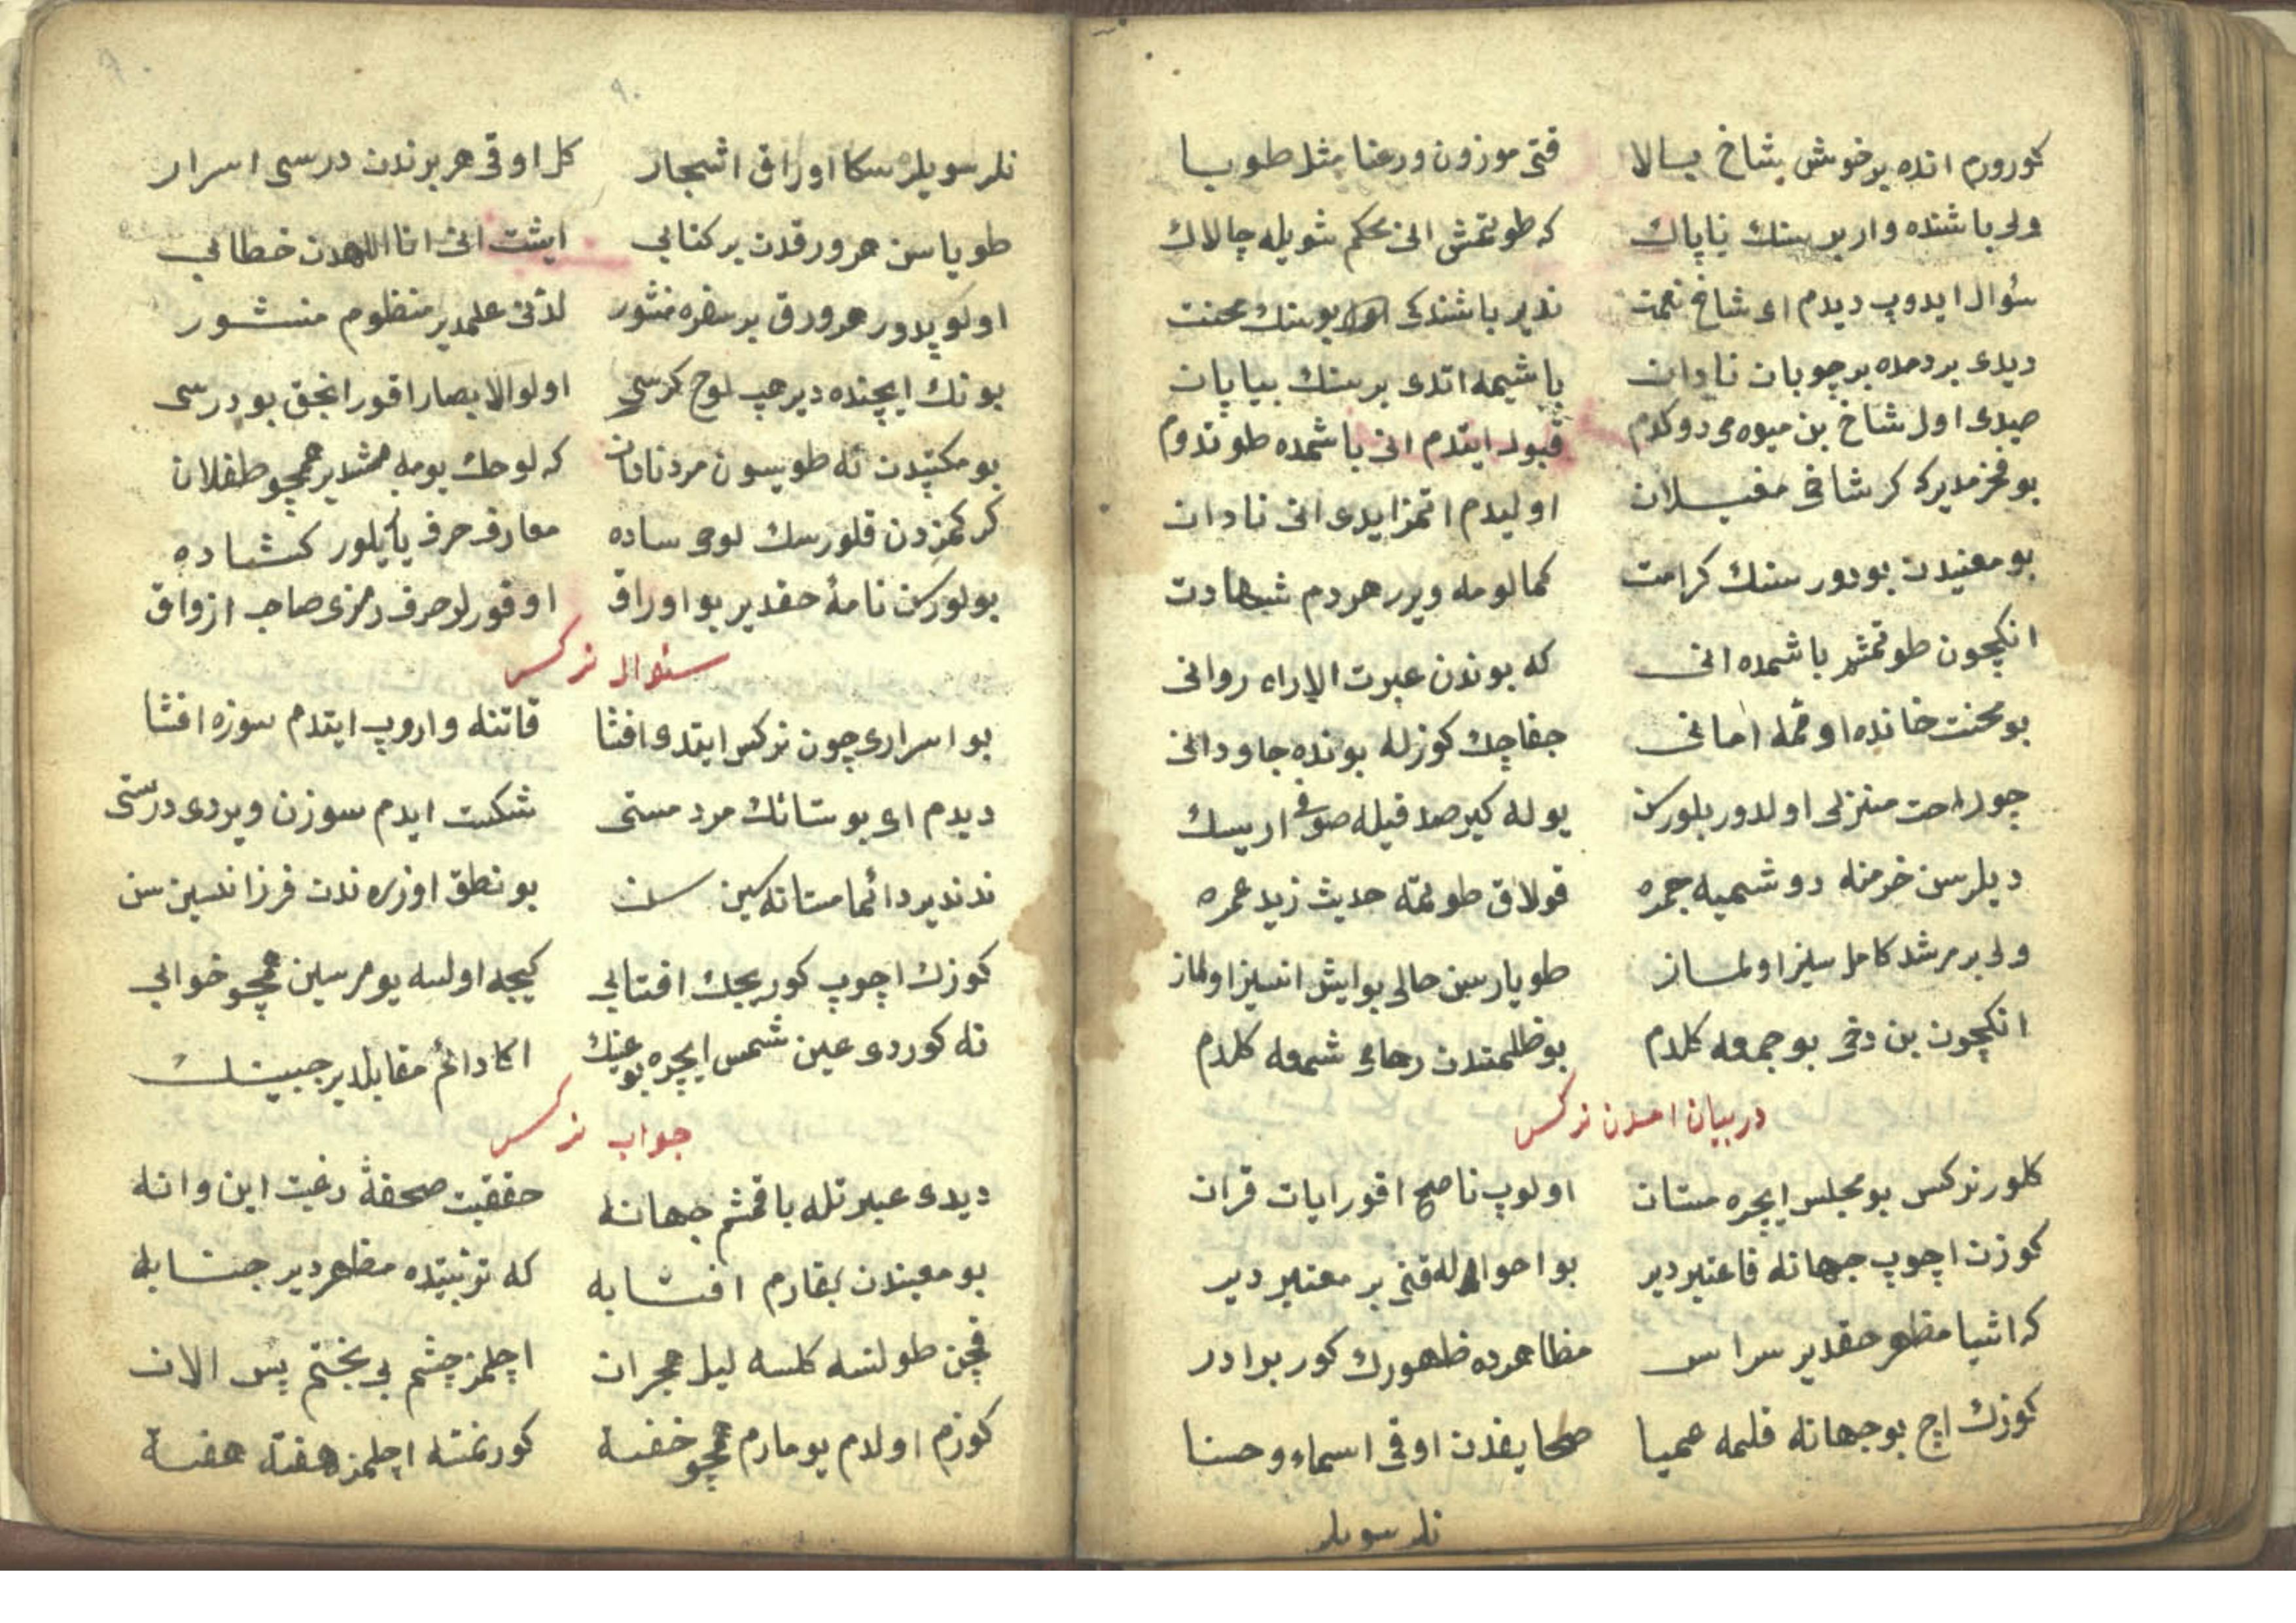 كورورم انده بر خوش شاخ بالا قتى موزون ورعنا مثل طوبا
ولى باشنده وار بر سنك ناپاك كه طوتمش انى محكم شويله چالاك
سؤال ايدوپ ديدم اى شاخ نعمت ندير باشندكى بو سنك محنت
ديدى بردمده بر چوبان نادان باشيمه اتدى بر سنك بيابان
صيدى اول شاخ بن ميوه مى دوكدم قبول ايتدم انى باشمده طوتدوم
بو فخرمدير كه كر شاخى مغيلان اوليدم اتمز ايدى انى نادان
بو معنيدن بودور سنك كرامت كمالومه ويرر هردم شهادت
انكچون طوتمشم باشمده انى كه بوندن عبرت الا راه روانى
بو محنت خانده اوقمه امانى جفا چك كوزله بونده جاودانى
چو راحت منزلى اولدور بلورسن يوله كير صدقيله صوفى ارسك
ديلرسن خرمنه دوشميه جمره قولاق طوتمه حديث زيد عمره
ولى بر مرشد كامل سيز اولماز طويارسين حالى بو ايش انسيز اولماز
انكچون بن دخى بو جمعه كلدم بو ظلمتدن رهاى شمعه كلدم
در بيان امدن نركس
كلور نركس بو مجلس ايچره مستان اولوپ ناصح اقور ايات قران
كوزن اچوپ جهانه فاعتبر دير بو احواله قتى بر معتبر دير
كه اشيا مظهر حقدير سراسر مظاهرده ظهورك كور برادر
كوزك اچ بو جهانه قلمه عميا صحايفدن اوقى اسماء و حسنا
نلر سويلر
نلر سويلر سكا اوراق اشجار كل اوقى هر برندن درسى اسرار
طوياسن هر ورقدن بر كتابى ايشت انى انا اللهدن خطابى
اولوپدور هر ورق بر سفره منثور لدنى علمدير منظوم منشور
بونك ايچنده دير هپ لوح كرسى اولوالابصار اقور انجق بو درسى
بو مكتبدن نه طويسون مرد نادان كه لوحك بويه مشدير همچو طفلان
كر كمزدن قلورسك لوحى ساده معارف حرف يايلور كشاده
بولورسن نامهٔ حقدير بو اوراق اوقورلر حرف رمزى صاحب ازواق
سئوال نركس
بو اسرارى چون نركس ايتدى افشا قاتنه واروپ ايتدم سوزه افشا
ديدم اى بوستانك مرد مستى شكست ايدم سوزن ويردى درستى
ندندير دائما مستانه سين سن بو نطق اوزره ندن فرزانه سين سن
كوزك اچوپ كوريجك افتابى كيجه اولسه يومرسين همچو خوابى
نه كوردى عين شمس ايچره بو عينك اكا دائم مقابلدير جبينك
جواب نركس
ديدى عبرتله باقمشم جهانه حقيقت صحفهٔ رغبت اين وانه
بو معنيدن بقارم افتابه كه تربيتده مظهردير جنابه
قچن طولنسه كلسه ليل هجران اچلمز چشم بى بختم پس الان
كوزم اولدم يومارم همچو خفته كورنمنه اچلمز هفته هفته